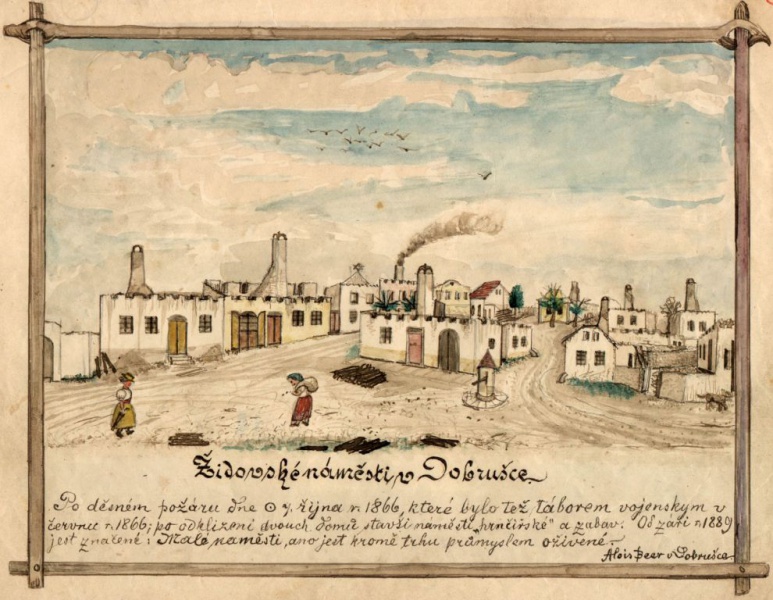 Židovské náměstí v Dobrušce
Po děsném požáru dne 7. října r. 1866, které bylo též táborem vojenským v
červnu r. 1866; po odklizení dvouch domů stavší náměstí „hrnčířské“ a zabav. Od září r. 1889
jest značené: Malé náměstí, ano jest kromě trhu průmyslem oživené.
Alois Beer v Dobrušce.